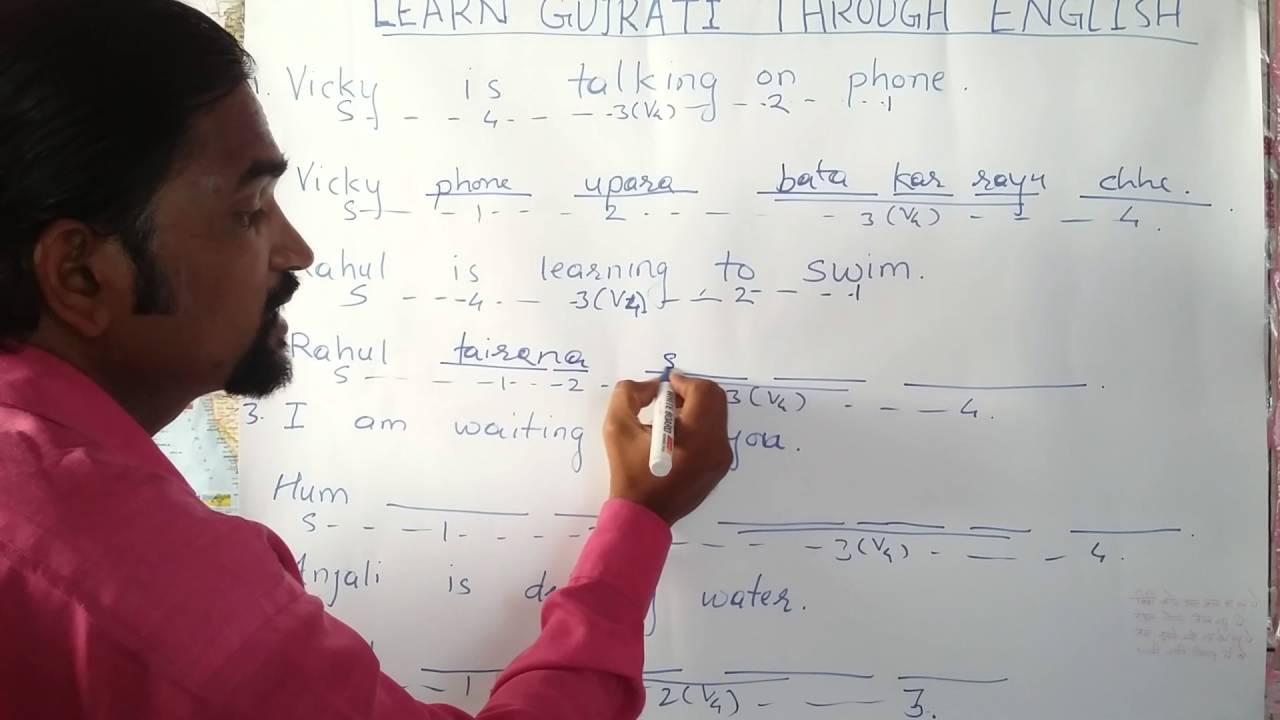 LEARN GUJRATI THROUGH ENGLISH
Vicky is talking on phone.
S - - - 4 - - - 3(V4) - - 2 - - 1
Vicky phone upara bata kar rayu chhe.
S - - - 1 - - - 2 - - - - 3(V4) - - - 4.
Rahul is learning to swim.
S - - - 4 - - 3(V4) - - 2 - - - 1
Rahul tairana
S - - - 1 - - - 2 - 3(V4) - - - 4.
3. I am waiting you.
Hum
S - - - 1 - - - - - - - 3(V4) - - - 4.
Anjali is water.
- - 1 2(V4) - - 3.